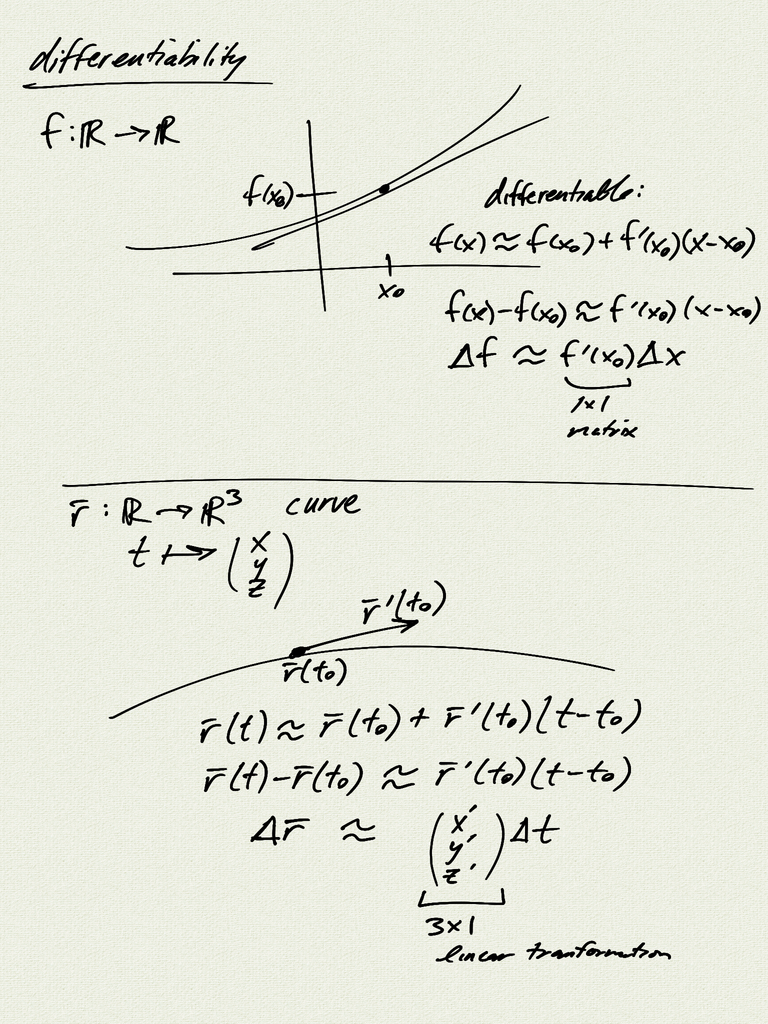 differentiability
f : ℝ → ℝ
f(x₀)
x₀
differentiable:
f(x) ≈ f(x₀) + f'(x₀)(x-x₀)
f(x)-f(x₀) ≈ f'(x₀)(x-x₀)
Δf ≈ f'(x₀)Δx
1×1
matrix
r̄ : ℝ → ℝ³ curve
t ↦ (x
y
z)
r̄'(t₀)
r̄(t₀)
r̄(t) ≈ r̄(t₀) + r̄'(t₀)(t-t₀)
r̄(t)-r̄(t₀) ≈ r̄'(t₀)(t-t₀)
Δr̄ ≈ (x'
y'
z') Δt
3×1
linear tranformation